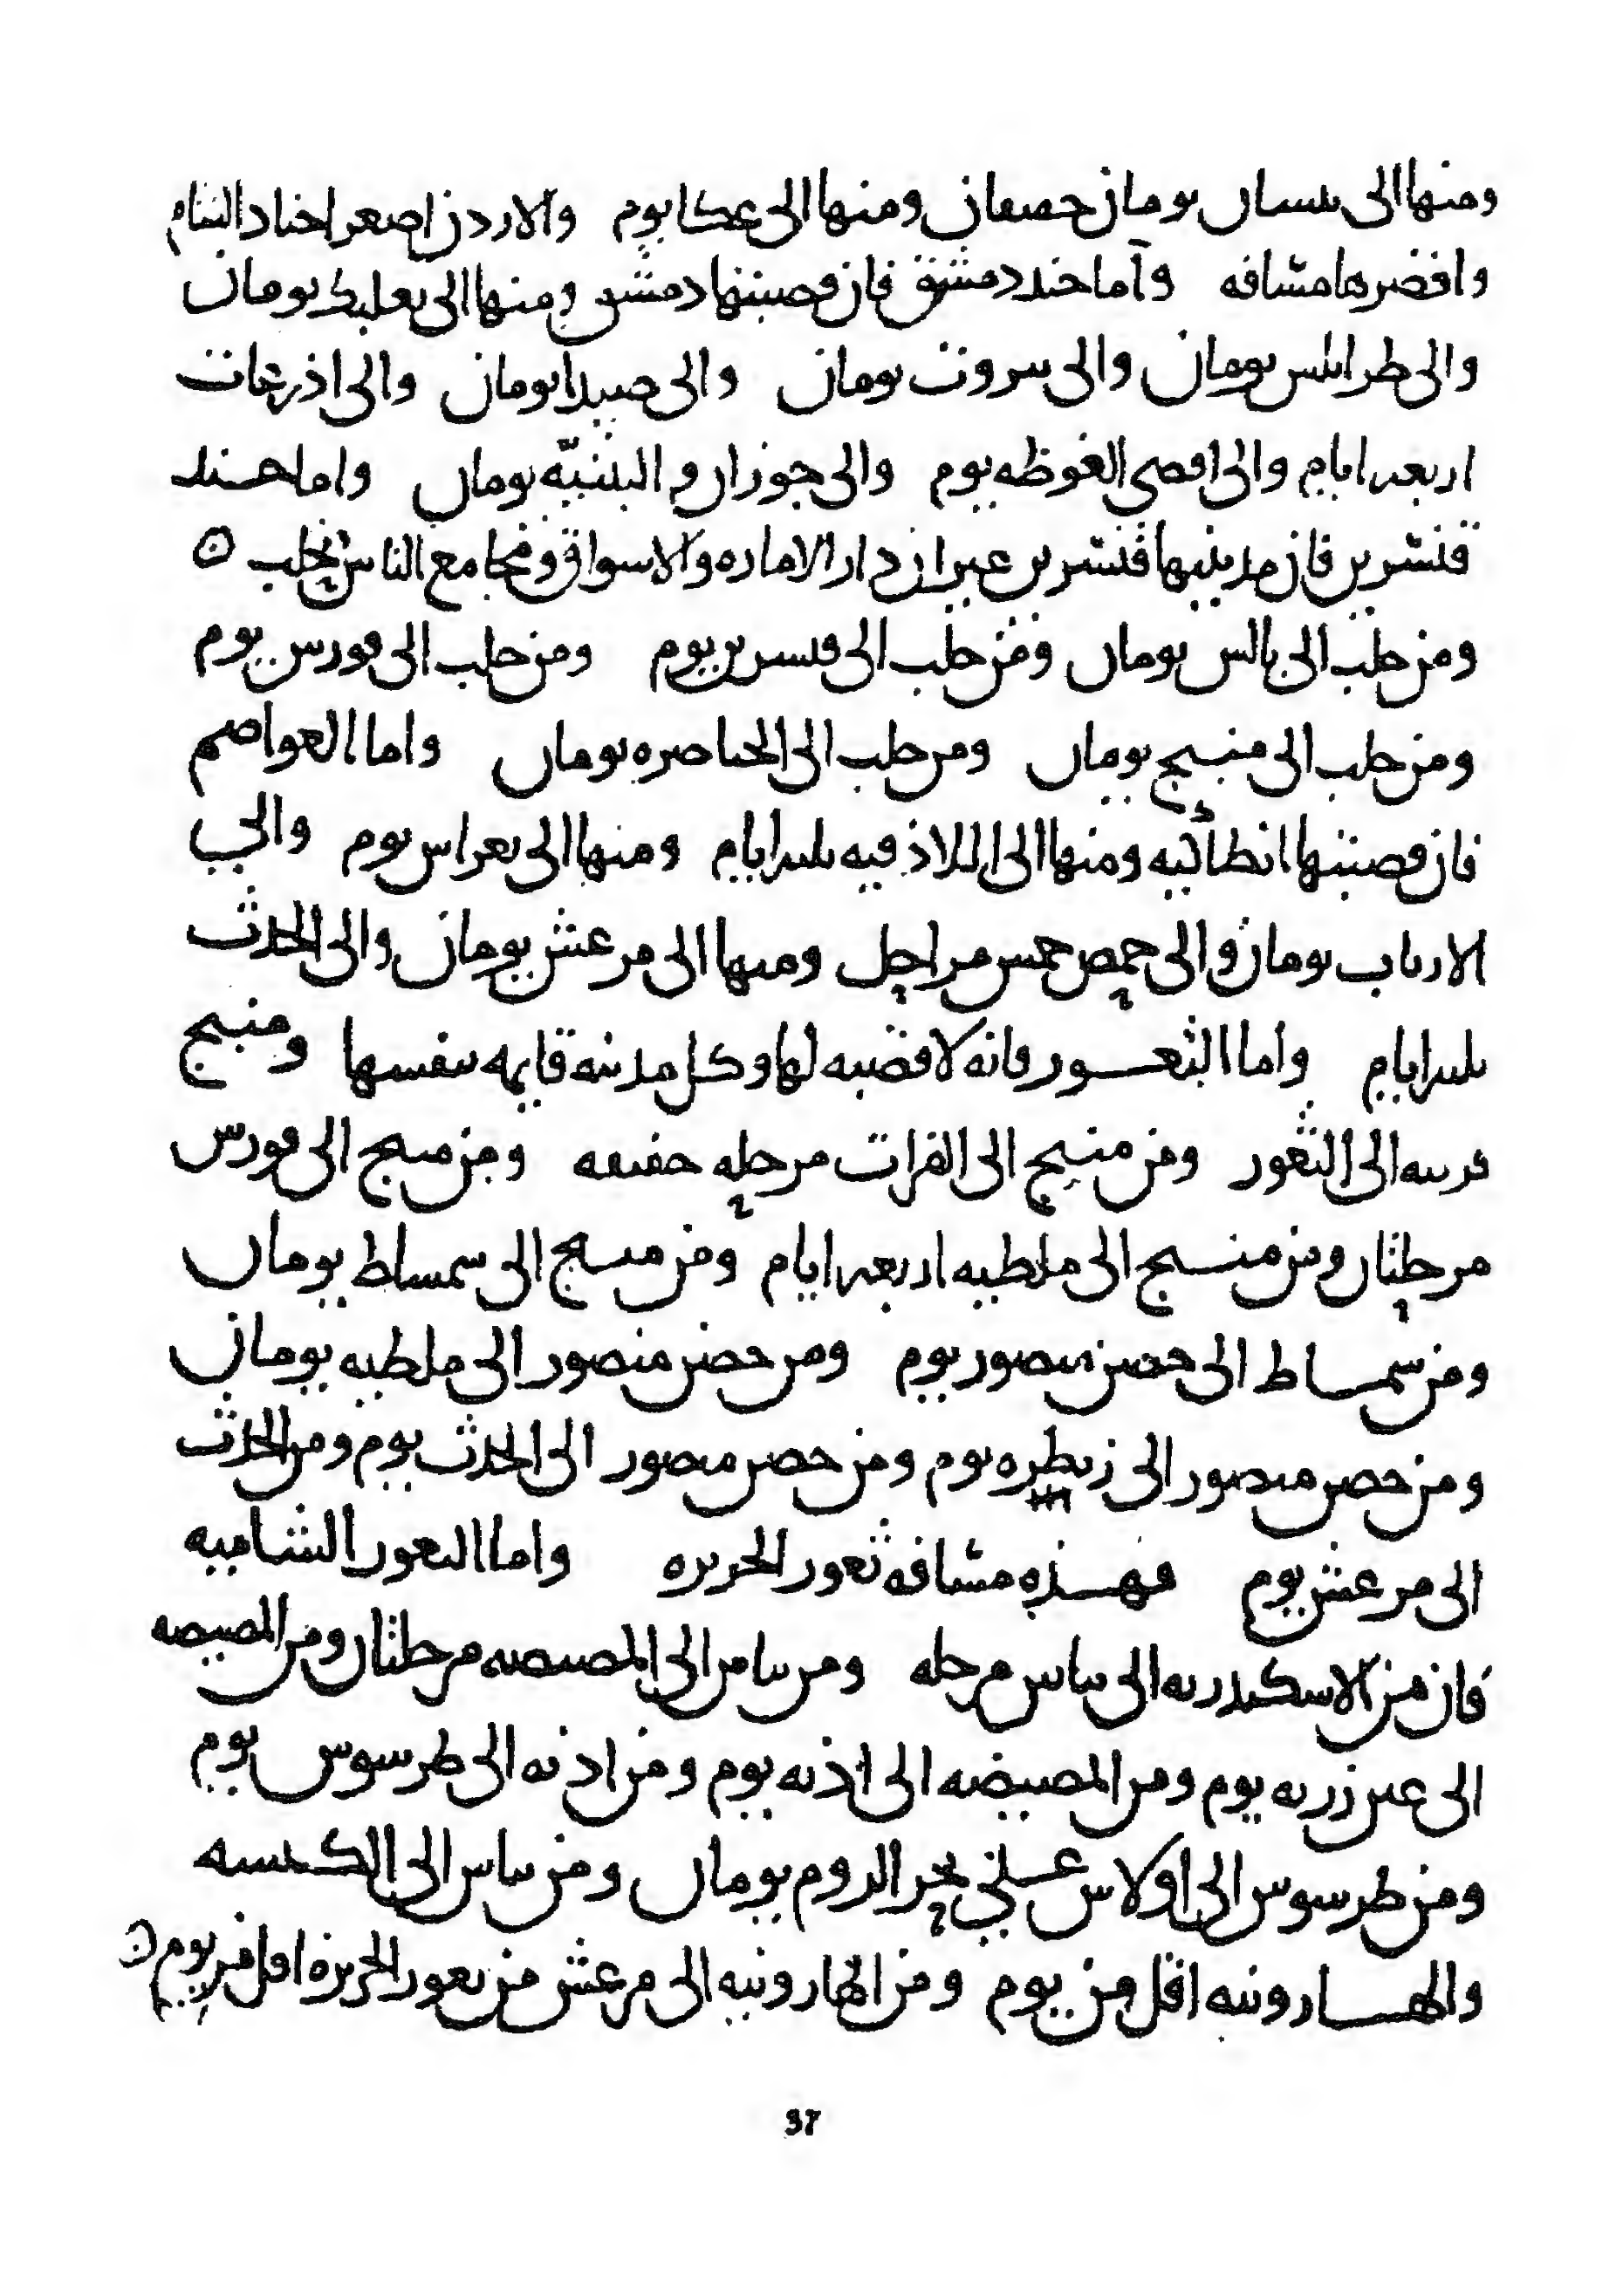 ومنها الى بيسان يومان خفيفان ومنها الى عكا يوم والاردن اصغر اجناد الشام
واقصرها مسافه واما جند دمشق فان قصبتها دمشق ومنها الى بعلبك يومان
والى طرابلس يومان والى بيروت يومان والى صيدا يومان والى اذرعات
اربعه ايام والى اقصى الغوطه يوم والى حوران والبثنيّه يومان واما جند
قنسرين فان مدينتها قنسرين غير ان دار الاماره والاسواق ومجامع الناس بحلب ن
ومن حلب الى بالس يومان ومن حلب الى قنسرين يوم ومن حلب الى قورس يوم
ومن حلب الى منبج يومان ومن حلب الى الخناصره يومان واما العواصم
فان قصبتها انطاكيه ومنها الى اللاذقيه ثلثه ايام ومنها الى بغراس يوم والى
الاثارب يومان والى حمص خمس مراحل ومنها الى مرعش يومان والى الحدث
ثلثه ايام واما الثغور فانه لا قصبه لها وكل مدينه قايمه بنفسها ومنبج
قريبه الى الثغور ومن منبج الى الفرات مرحله خفيفه ومن منبج الى قورس
مرحلتان ومن منبج الى ملطيه اربعه ايام ومن منبج الى سمساط يومان
ومن سمساط الى حصن منصور يوم ومن حصن منصور الى ملطيه يومان
ومن حصن منصور الى زبطره يوم ومن حصن منصور الى الحدث يوم ومن الحدث
الى مرعش يوم فهذه مسافه ثغور الجزيره واما الثغور الشاميه
فان من الاسكندريه الى بياس مرحله ومن بياس الى المصيصه مرحلتان ومن المصيصه
الى عين زربه يوم ومن المصيصه الى اذنه يوم ومن اذنه الى طرسوس يوم
ومن طرسوس الى اولاس على بحر الروم يومان ومن بياس الى الكنيسه
والهارونيه اقل من يوم ومن الهارونيه الى مرعش من ثغور الجزيره اقل من يوم ن
37